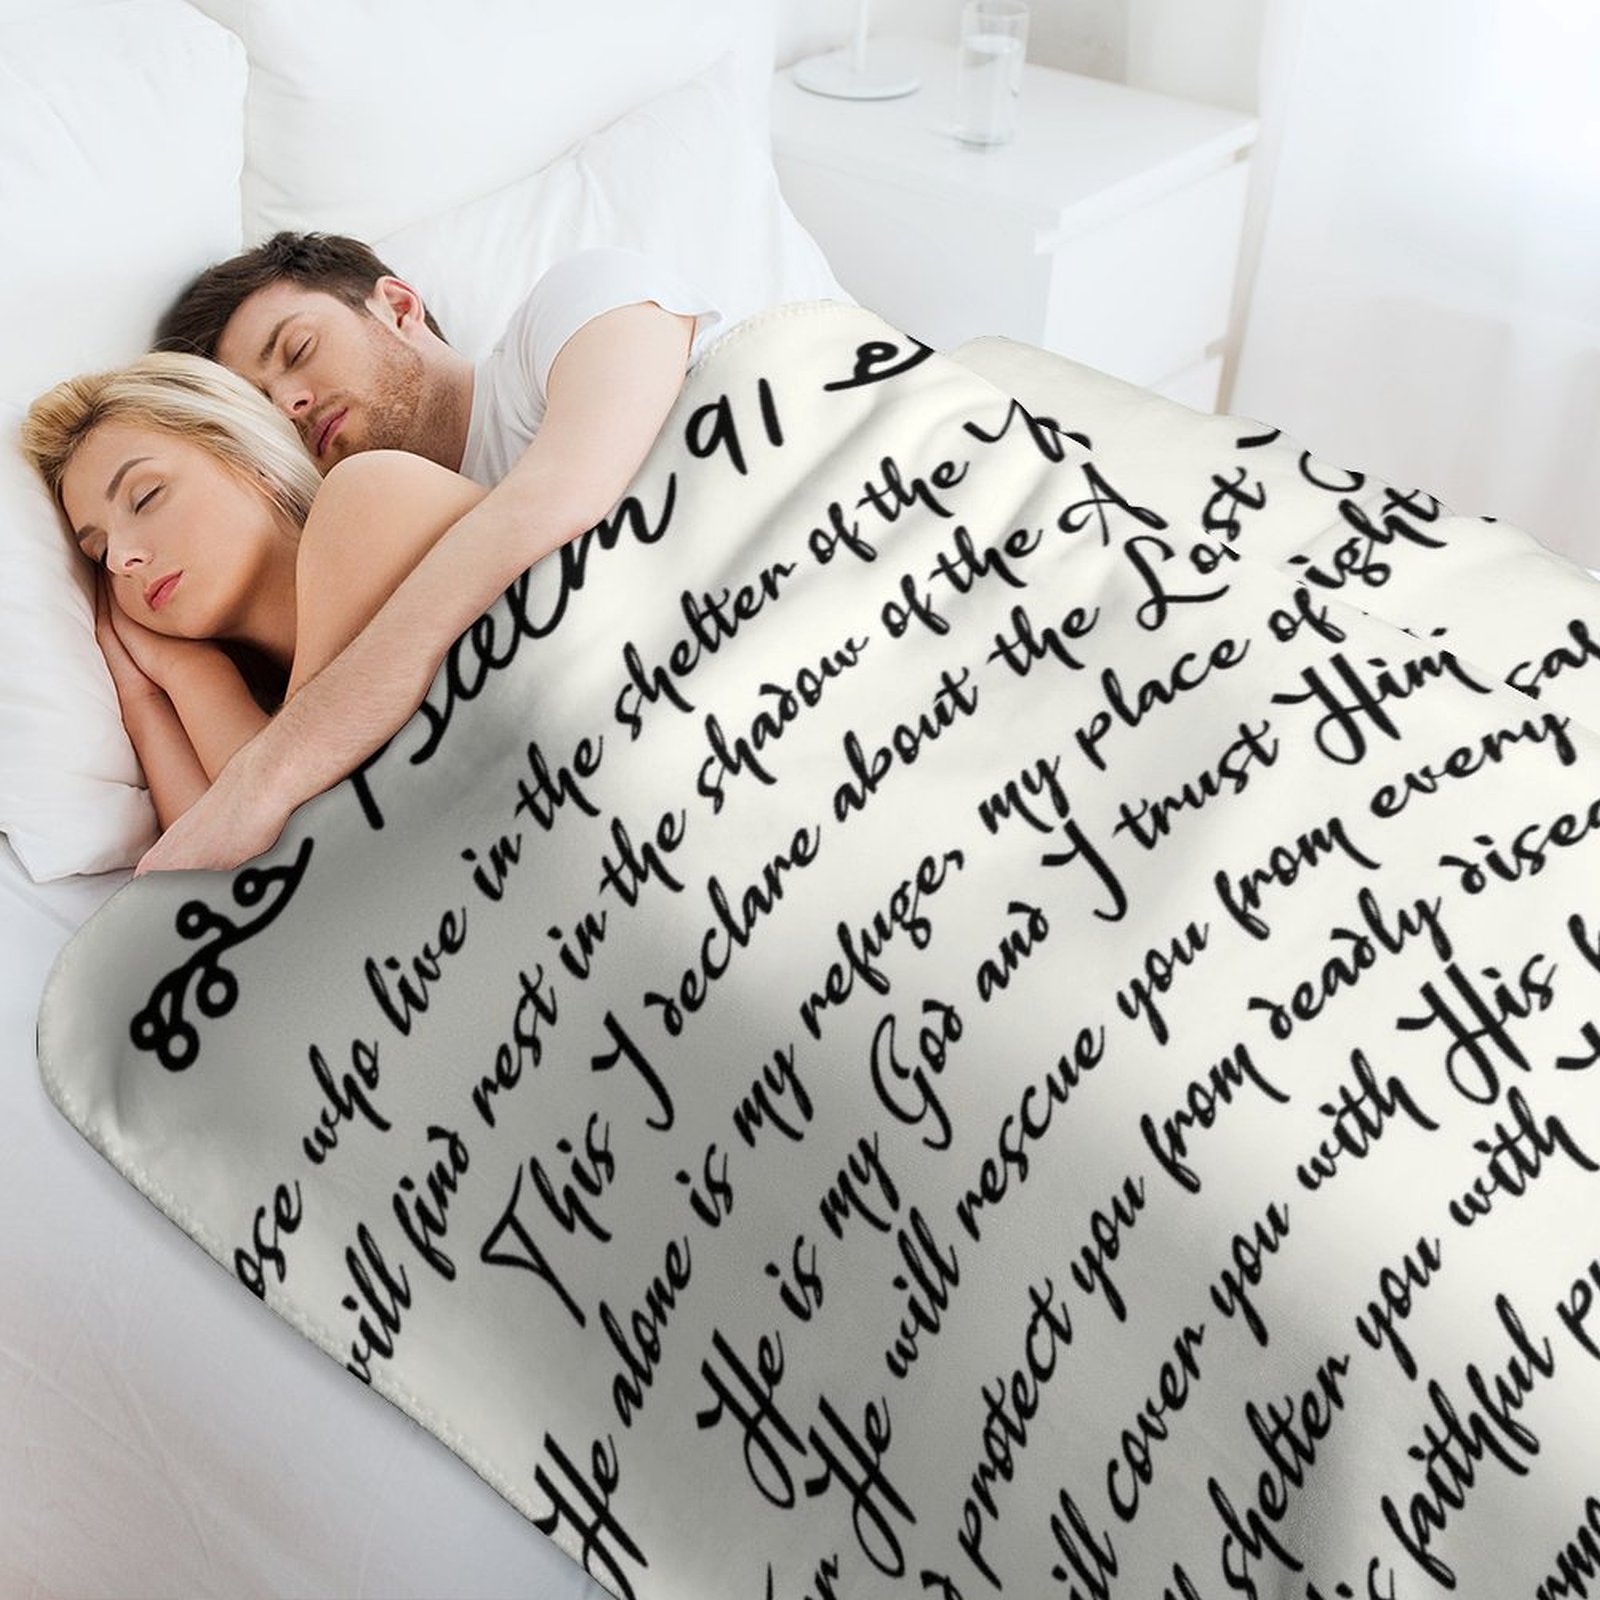 Psalm 91
who live in the shelter of the
will find rest in the shadow of the
This I declare about the Lost
He alone is my refuge, my place of
He is my God and I trust Him
He will rescue you from every
protect you from deadly
will cover you with His
shelter you with
faithful